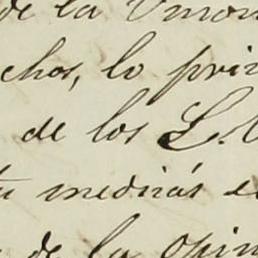 de la Union
chos, lo prin
de los L.
medirás e
de la opin